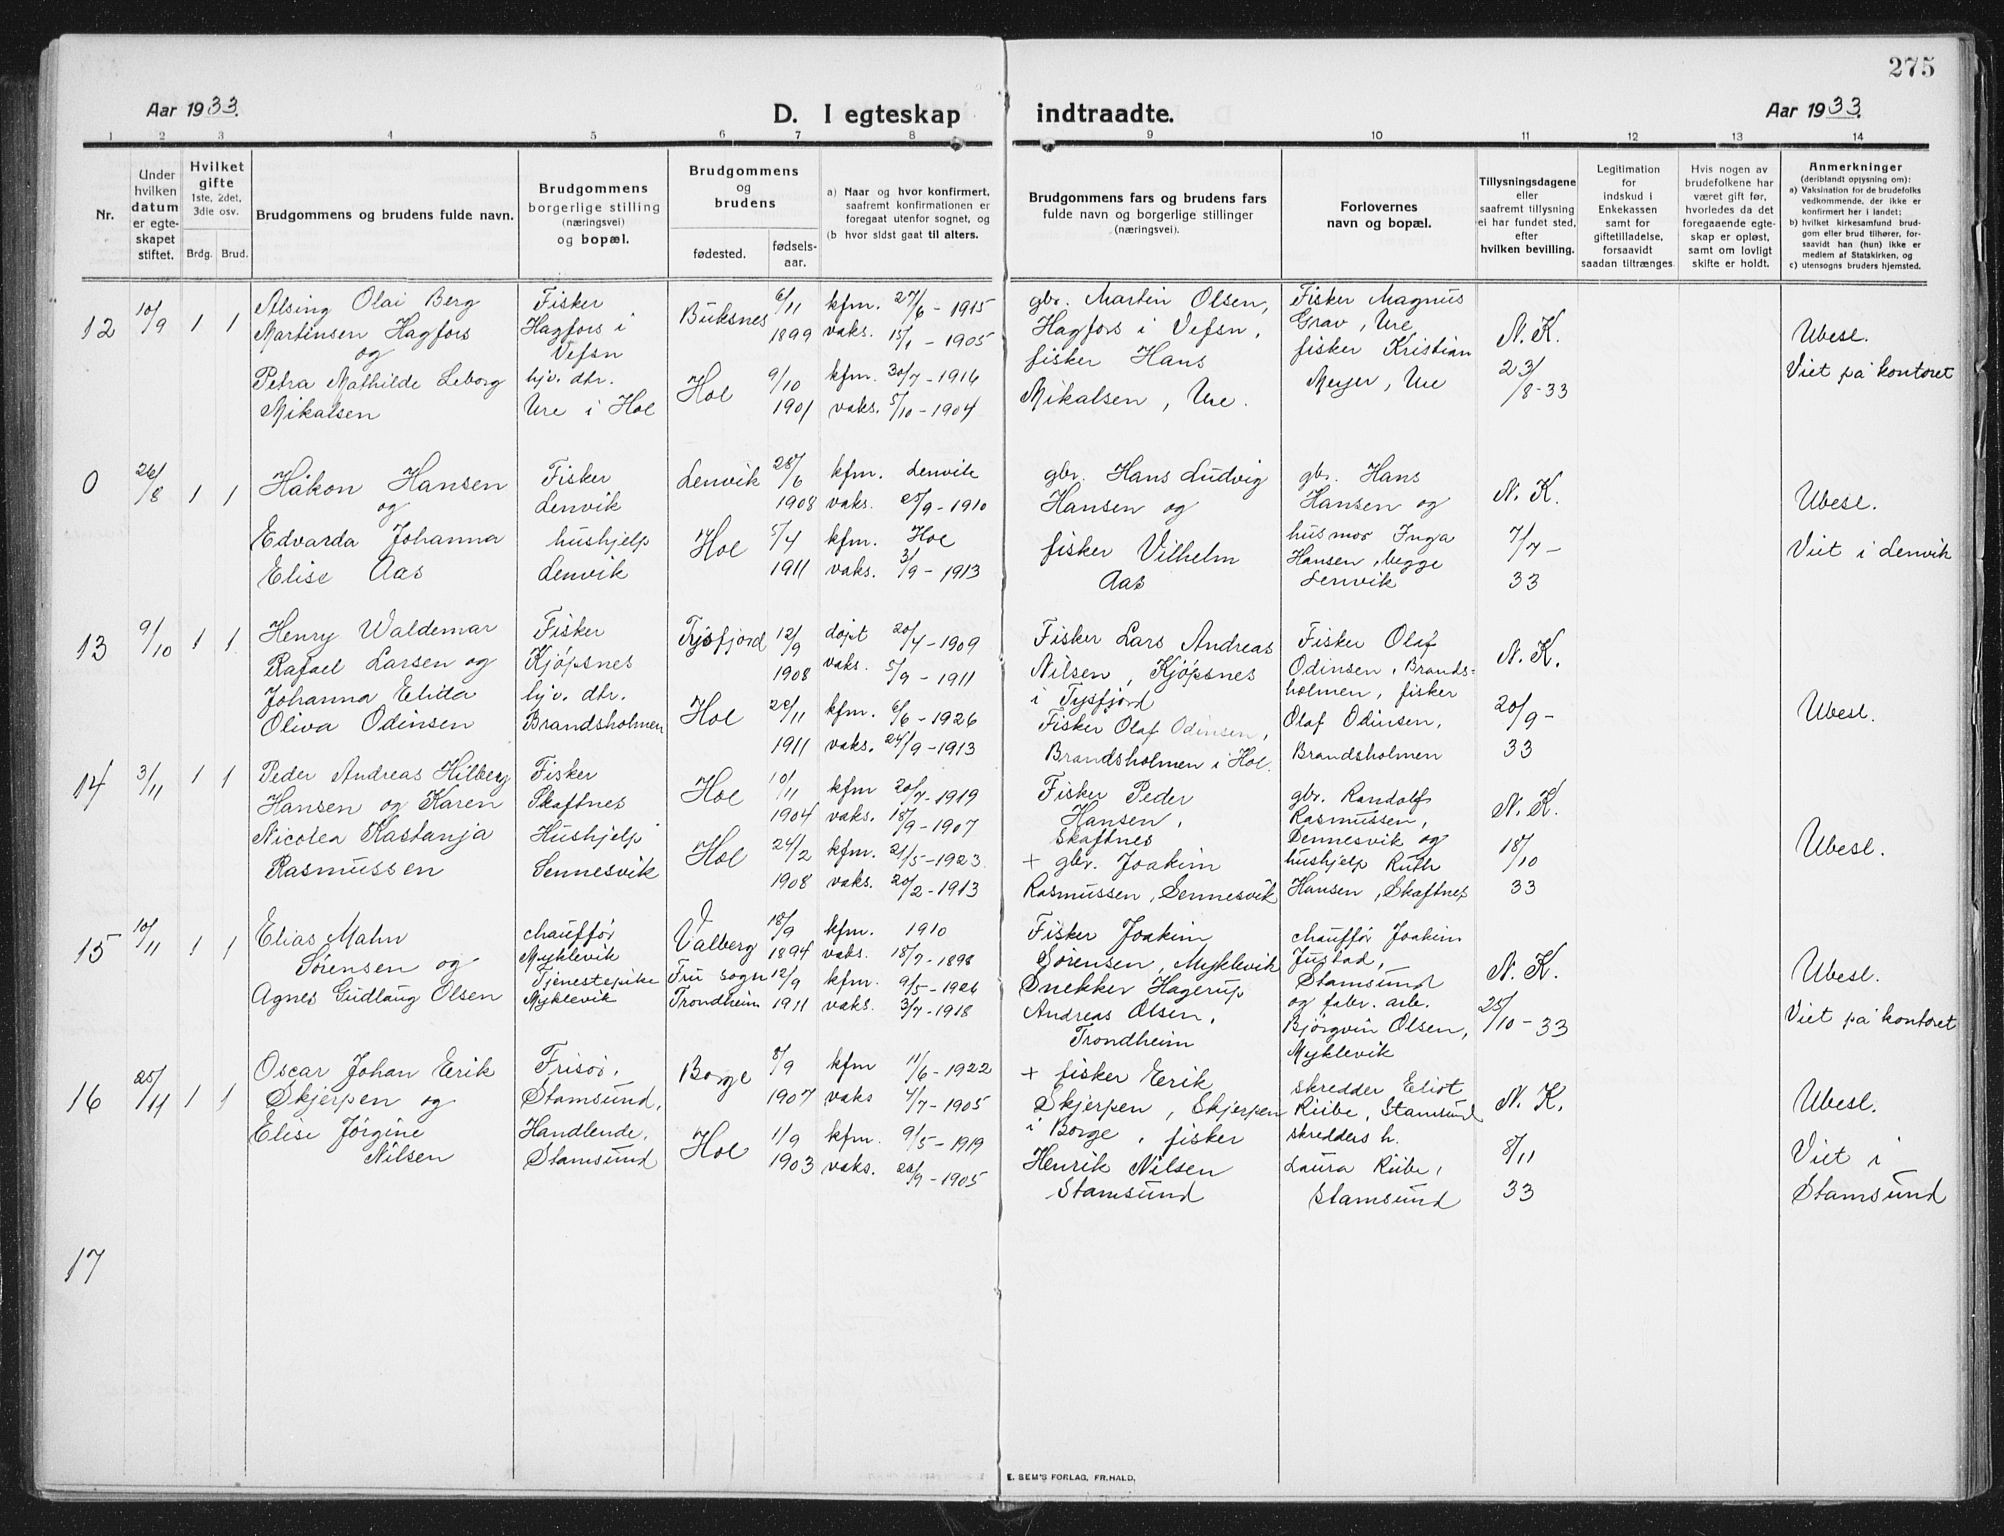 275
Aar 1933.
D. I egteskap indtraadte.
Aar 1933.
1 2 3 4 5 6 7 8 9 10 11 12 13 14
Nr.
Under hvilken datum er egteskapet stiftet.
Hvilket gifte 1ste, 2det, 3die osv.
Brdg. Brud.
Brudgommens og brudens fulde navn.
Brudgommens borgerlige stilling (næringsvei) og bopæl.
Brudgommens og brudens
fødested.
fødsels-aar.
a) Naar og hvor konfirmert, saafremt konfirmationen er foregaat utenfor sognet, og
(b hvor sidst gaat til alters.
Brudgommens fars og brudens fars fulde navn og borgerlige stillinger (næringsvei).
Forlovernes navn og bopæl.
Tillysningsdagene eller saafremt tillysning ei har fundet sted, efter hvilken bevilling.
Legitimation for indskud i Enkekassen samt for giftetilladelse, forsaavidt saadan tiltrænges.
Hvis nogen av brudefolkene har været gift før, hvorledes da det foregaaende egteskap er opløst, samt om lovligt skifte er holdt.
Anmerkninger
(deriblandt opysning om):
a) Vaksination for de brudefolks vedkommende, der ikke er konfirmert her i landet;
b) hvilket kirkesamfund brudgom eller brud tilhører, forsaavidt han (hun) ikke er medlem af Statskirken, og
c) utensogns bruders hjemsted.
12
10/9
1 1
Alsing Olai Berg
Martinsen Hagfors
og
Petra Mathilde Leborg
Mikalsen
Fisker
Hagfors i
Vefsn
hjv. dtr.
Ure i Hol
Buksnes
Hol
6/11
1899
9/10
1901
kfm. 27/6 - 1915
vaks. 15/1 - 1905
kfm. 30/7 - 1916
vaks. 5/10 - 1904
gbr. Martin Olsen,
Hagfors i Vefsn,
fisker Hans
Mikalsen, Ure.
Fisker Magnus
Grav, Ure,
fisker Kristian
Meyer, Ure
N.K.
23/8-33
Ubesl.
Viet på kontoret
0
26/8
1 1
Håkon Hansen
og
Edvarda Johanna
Elise Aas
Fisker
Lenvik
hushjelp
Lenvik
Lenvik
Hol
28/6
1908
5/4
1911
kfm. Lenvik
vaks. 25/9 - 1910
kfm. Hol
vaks. 3/9 - 1913
gbr. Hans Ludvig
Hansen og
fisker Vilhelm
Aas
gbr. Hans
Hansen og
husmor Inga
Hansen, begge
Lenvik
N.K.
7/7 -
33
Ubesl.
Viet i Lenvik
13
9/10
1 1
Henry Waldemar
Rafael Larsen og
Johanna Elida
Oliva Odinsen
Fisker
Kjøpsnes
hjv. dtr.
Brandsholmen
Tysfjord
Hol
12/9
1908
20/11
1911
døpt 20/4 - 1909
vaks. 5/9 - 1911
kfm. 6/6 - 1926
vaks. 24/9 - 1913
Fisker Lars Andreas
Nilsen, Kjøpsnes
i Tysfjord
Fisker Olaf Odinsen,
Brandsholmen i Hol.
Fisker Olaf
Odinsen, Brands-
holmen, fisker
Olaf Odinsen,
Brandsholmen
N.K.
20/9 -
33
Ubesl.
14
3/11
1 1
Peder Andreas Hilberg
Hansen og Karen
Nicolea Kastanja
Rasmussen
Fisker
Skaftnes
Hushjelp
Sennesvik
Hol
Hol
10/11
1904
24/2
1908
kfm 20/7 - 1919
vaks. 18/9 - 1907
kfm. 21/5 - 1923
vaks. 20/2 - 1913
Fisker Peder
Hansen,
Skaftnes
+ gbr. Joakim
Rasmussen, Sennesvik
gbr. Randolf
Rasmussen,
Sennesvik og
hushjelp Ruth
Hansen, Skaftnes
N.K.
18/10
33
Ubesl.
15
10/11
1 1
Elias Mahn
Sørensen og
Agnes Gudlaug Olsen
chauffør
Myklevik
Tjenestepike
Myklevik
Valberg
Fru sogn
Trondheim
18/9
1894
12/9
1911
kfm. 1910
vaks. 18/7 - 1898
kfm. 9/5 - 1926
vaks. 3/7 - 1918
Fisker Joakim
Sørensen, Myklevik
Snekker Hagerup
Andreas Olsen,
Trondheim
chauffør Joakim
Justad,
Stamsund
og fabr. arb.
Bjørgvin Olsen,
Myklevik
N.K.
25/10 - 33
Ubesl.
Viet på kontoret
16
25/11
1 1
Oscar Johan Erik
Skjerpen og
Elise Jørgine
Nilsen
Frisør,
Stamsund,
Handlende,
Stamsund
Borge
Hol
8/9
1907
1/9
1903
kfm 11/6 - 1922
vaks 4/7 - 1905
kfm. 9/5 - 1919
vaks. 28/9 - 1905
+ fisker Erik
Skjerpen, Skjerpen
i Borge, fisker
Henrik Nilsen
Stamsund
skredder Eliot
Riibe, Stamsund
skredders h.
Laura Riibe,
Stamsund
N.K.
8/11
33
Ubesl.
Viet i
Stamsund
17
E. SEM'S FORLAG, FR.HALD.